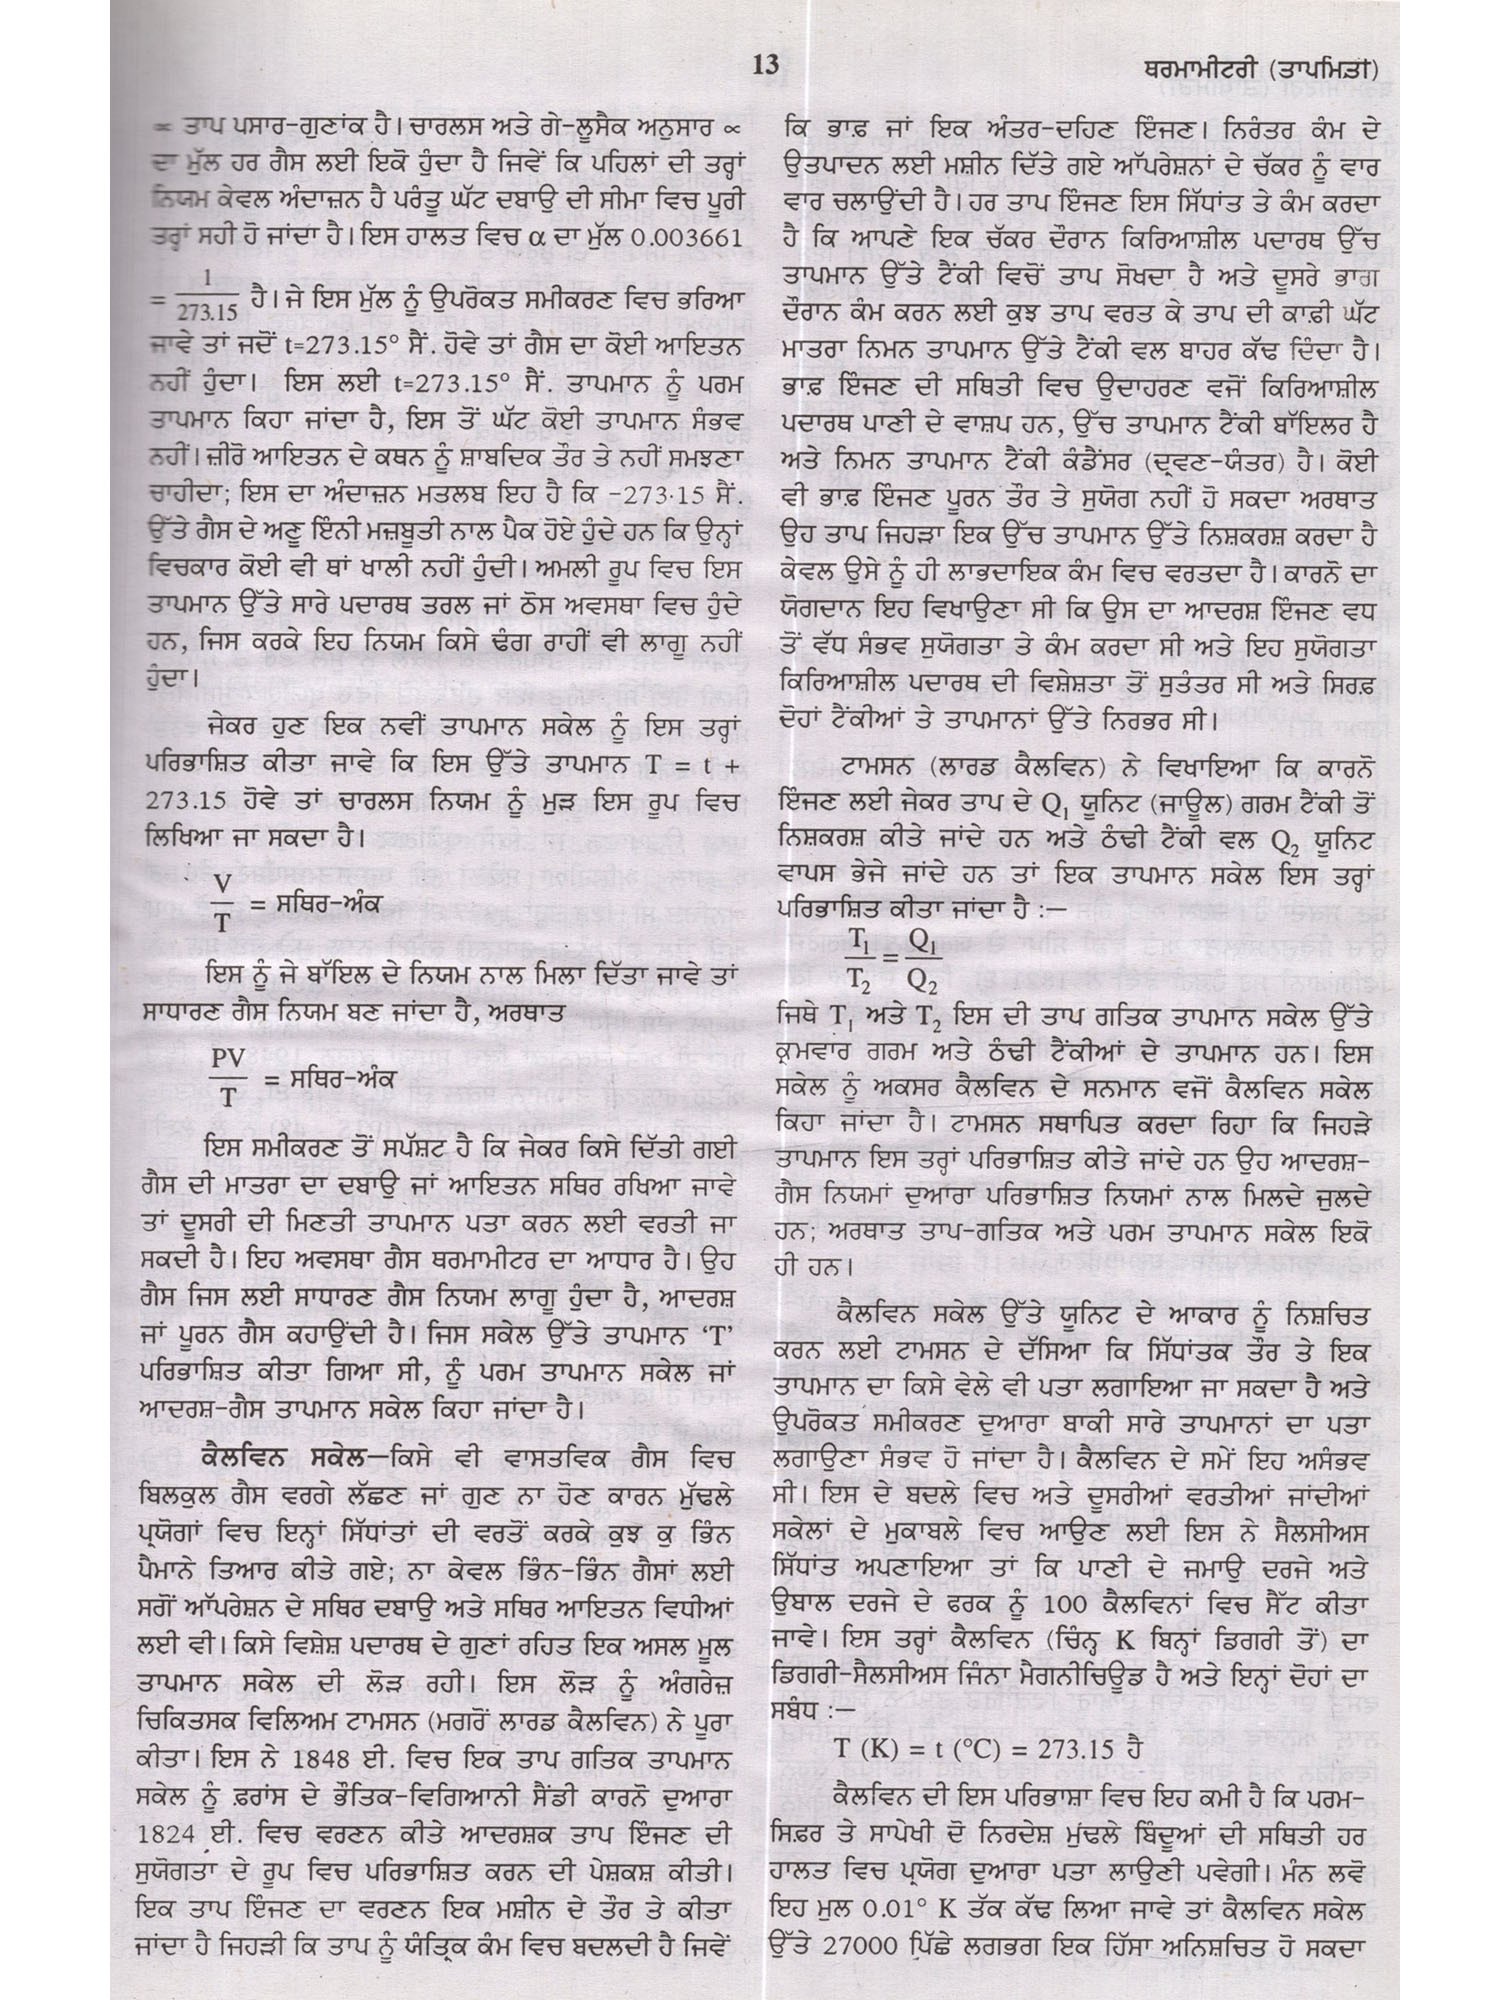 13
ਥਰਮਾਮੀਟਰੀ (ਤਾਪਮਿਤੀ)
∝ ਤਾਪ ਪਸਾਰ-ਗੁਣਾਂਕ ਹੈ। ਚਾਰਲਸ ਅਤੇ ਗੇ-ਲੂਸੈਕ ਅਨੁਸਾਰ ∝
ਦਾ ਮੁੱਲ ਹਰ ਗੈਸ ਲਈ ਇਕੋ ਹੁੰਦਾ ਹੈ ਜਿਵੇਂ ਕਿ ਪਹਿਲਾਂ ਦੀ ਤਰ੍ਹਾਂ
ਨਿਯਮ ਕੇਵਲ ਅੰਦਾਜ਼ਨ ਹੈ ਪਰੰਤੂ ਘੱਟ ਦਬਾਉ ਦੀ ਸੀਮਾ ਵਿਚ ਪੂਰੀ
ਤਰ੍ਹਾਂ ਸਹੀ ਹੋ ਜਾਂਦਾ ਹੈ। ਇਸ ਹਾਲਤ ਵਿਚ α ਦਾ ਮੁੱਲ 0.003661
= 1/273.15 ਹੈ। ਜੇ ਇਸ ਮੁੱਲ ਨੂੰ ਉਪਰੋਕਤ ਸਮੀਕਰਣ ਵਿਚ ਭਰਿਆ
ਜਾਵੇ ਤਾਂ ਜਦੋਂ t=273.15° ਸੈਂ. ਹੋਵੇ ਤਾਂ ਗੈਸ ਦਾ ਕੋਈ ਆਇਤਨ
ਨਹੀਂ ਹੁੰਦਾ। ਇਸ ਲਈ t=273.15° ਸੈਂ. ਤਾਪਮਾਨ ਨੂੰ ਪਰਮ
ਤਾਪਮਾਨ ਕਿਹਾ ਜਾਂਦਾ ਹੈ, ਇਸ ਤੋਂ ਘੱਟ ਕੋਈ ਤਾਪਮਾਨ ਸੰਭਵ
ਨਹੀਂ। ਜ਼ੀਰੋ ਆਇਤਨ ਦੇ ਕਥਨ ਨੂੰ ਸ਼ਾਬਦਿਕ ਤੌਰ ਤੇ ਨਹੀਂ ਸਮਝਣਾ
ਚਾਹੀਦਾ; ਇਸ ਦਾ ਅੰਦਾਜ਼ਨ ਮਤਲਬ ਇਹ ਹੈ ਕਿ -273·15 ਸੈਂ.
ਉੱਤੇ ਗੈਸ ਦੇ ਅਣੂ ਇੰਨੀ ਮਜ਼ਬੂਤੀ ਨਾਲ ਪੈਕ ਹੋਏ ਹੁੰਦੇ ਹਨ ਕਿ ਉਨ੍ਹਾਂ
ਵਿਚਕਾਰ ਕੋਈ ਵੀ ਥਾਂ ਖਾਲੀ ਨਹੀਂ ਹੁੰਦੀ। ਅਮਲੀ ਰੂਪ ਵਿਚ ਇਸ
ਤਾਪਮਾਨ ਉੱਤੇ ਸਾਰੇ ਪਦਾਰਥ ਤਰਲ ਜਾਂ ਠੋਸ ਅਵਸਥਾ ਵਿਚ ਹੁੰਦੇ
ਹਨ, ਜਿਸ ਕਰਕੇ ਇਹ ਨਿਯਮ ਕਿਸੇ ਢੰਗ ਰਾਹੀਂ ਵੀ ਲਾਗੂ ਨਹੀਂ
ਹੁੰਦਾ।
ਜੇਕਰ ਹੁਣ ਇਕ ਨਵੀਂ ਤਾਪਮਾਨ ਸਕੇਲ ਨੂੰ ਇਸ ਤਰ੍ਹਾਂ
ਪਰਿਭਾਸ਼ਿਤ ਕੀਤਾ ਜਾਵੇ ਕਿ ਇਸ ਉੱਤੇ ਤਾਪਮਾਨ T = t +
273.15 ਹੋਵੇ ਤਾਂ ਚਾਰਲਸ ਨਿਯਮ ਨੂੰ ਮੁੜ ਇਸ ਰੂਪ ਵਿਚ
ਲਿਖਿਆ ਜਾ ਸਕਦਾ ਹੈ।
V/T = ਸਥਿਰ-ਅੰਕ
ਇਸ ਨੂੰ ਜੇ ਬਾੱਇਲ ਦੇ ਨਿਯਮ ਨਾਲ ਮਿਲਾ ਦਿੱਤਾ ਜਾਵੇ ਤਾਂ
ਸਾਧਾਰਣ ਗੈਸ ਨਿਯਮ ਬਣ ਜਾਂਦਾ ਹੈ, ਅਰਥਾਤ
PV/T = ਸਥਿਰ-ਅੰਕ
ਇਸ ਸਮੀਕਰਣ ਤੋਂ ਸਪੱਸ਼ਟ ਹੈ ਕਿ ਜੇਕਰ ਕਿਸੇ ਦਿੱਤੀ ਗਈ
ਗੈਸ ਦੀ ਮਾਤਰਾ ਦਾ ਦਬਾਉ ਜਾਂ ਆਇਤਨ ਸਥਿਰ ਰਖਿਆ ਜਾਵੇ
ਤਾਂ ਦੂਸਰੀ ਦੀ ਮਿਣਤੀ ਤਾਪਮਾਨ ਪਤਾ ਕਰਨ ਲਈ ਵਰਤੀ ਜਾ
ਸਕਦੀ ਹੈ। ਇਹ ਅਵਸਥਾ ਗੈਸ ਥਰਮਾਮੀਟਰ ਦਾ ਆਧਾਰ ਹੈ। ਉਹ
ਗੈਸ ਜਿਸ ਲਈ ਸਾਧਾਰਣ ਗੈਸ ਨਿਯਮ ਲਾਗੂ ਹੁੰਦਾ ਹੈ, ਆਦਰਸ਼
ਜਾਂ ਪੂਰਨ ਗੈਸ ਕਹਾਉਂਦੀ ਹੈ। ਜਿਸ ਸਕੇਲ ਉੱਤੇ ਤਾਪਮਾਨ ‘T’
ਪਰਿਭਾਸ਼ਿਤ ਕੀਤਾ ਗਿਆ ਸੀ, ਨੂੰ ਪਰਮ ਤਾਪਮਾਨ ਸਕੇਲ ਜਾਂ
ਆਦਰਸ਼-ਗੈਸ ਤਾਪਮਾਨ ਸਕੇਲ ਕਿਹਾ ਜਾਂਦਾ ਹੈ।
ਕੈਲਵਿਨ ਸਕੇਲ—ਕਿਸੇ ਵੀ ਵਾਸਤਵਿਕ ਗੈਸ ਵਿਚ
ਬਿਲਕੁਲ ਗੈਸ ਵਰਗੇ ਲੱਛਣ ਜਾਂ ਗੁਣ ਨਾ ਹੋਣ ਕਾਰਨ ਮੁੱਢਲੇ
ਪ੍ਰਯੋਗਾਂ ਵਿਚ ਇਨ੍ਹਾਂ ਸਿੱਧਾਂਤਾਂ ਦੀ ਵਰਤੋਂ ਕਰਕੇ ਕੁਝ ਕੁ ਭਿੰਨ
ਪੈਮਾਨੇ ਤਿਆਰ ਕੀਤੇ ਗਏ; ਨਾ ਕੇਵਲ ਭਿੰਨ-ਭਿੰਨ ਗੈਸਾਂ ਲਈ
ਸਗੋਂ ਆੱਪਰੇਸ਼ਨ ਦੇ ਸਥਿਰ ਦਬਾਉ ਅਤੇ ਸਥਿਰ ਆਇਤਨ ਵਿਧੀਆਂ
ਲਈ ਵੀ। ਕਿਸੇ ਵਿਸ਼ੇਸ਼ ਪਦਾਰਥ ਦੇ ਗੁਣਾਂ ਰਹਿਤ ਇਕ ਅਸਲ ਮੂਲ
ਤਾਪਮਾਨ ਸਕੇਲ ਦੀ ਲੋੜ ਰਹੀ। ਇਸ ਲੋੜ ਨੂੰ ਅੰਗਰੇਜ਼
ਚਿਕਿਤਸਕ ਵਿਲਿਅਮ ਟਾਮਸਨ (ਮਗਰੋਂ ਲਾਰਡ ਕੈਲਵਿਨ) ਨੇ ਪੂਰਾ
ਕੀਤਾ। ਇਸ ਨੇ 1848 ਈ. ਵਿਚ ਇਕ ਤਾਪ ਗਤਿਕ ਤਾਪਮਾਨ
ਸਕੇਲ ਨੂੰ ਫ਼ਰਾਂਸ ਦੇ ਭੌਤਿਕ-ਵਿਗਿਆਨੀ ਸੈਂਡੀ ਕਾਰਨੋ ਦੁਆਰਾ
1824 ਈ. ਵਿਚ ਵਰਣਨ ਕੀਤੇ ਆਦਰਸ਼ਕ ਤਾਪ ਇੰਜਣ ਦੀ
ਸੁਯੋਗਤਾ ਦੇ ਰੂਪ ਵਿਚ ਪਰਿਭਾਸ਼ਿਤ ਕਰਨ ਦੀ ਪੇਸ਼ਕਸ਼ ਕੀਤੀ।
ਇਕ ਤਾਪ ਇੰਜਣ ਦਾ ਵਰਣਨ ਇਕ ਮਸ਼ੀਨ ਦੇ ਤੌਰ ਤੇ ਕੀਤਾ
ਜਾਂਦਾ ਹੈ ਜਿਹੜੀ ਕਿ ਤਾਪ ਨੂੰ ਯੰਤ੍ਰਿਕ ਕੰਮ ਵਿਚ ਬਦਲਦੀ ਹੈ ਜਿਵੇਂ
ਕਿ ਭਾਫ਼ ਜਾਂ ਇਕ ਅੰਤਰ-ਦਹਿਣ ਇੰਜਣ। ਨਿਰੰਤਰ ਕੰਮ ਦੇ
ਉਤਪਾਦਨ ਲਈ ਮਸ਼ੀਨ ਦਿੱਤੇ ਗਏ ਆੱਪਰੇਸ਼ਨਾਂ ਦੇ ਚੱਕਰ ਨੂੰ ਵਾਰ
ਵਾਰ ਚਲਾਉਂਦੀ ਹੈ। ਹਰ ਤਾਪ ਇੰਜਣ ਇਸ ਸਿੱਧਾਂਤ ਤੇ ਕੰਮ ਕਰਦਾ
ਹੈ ਕਿ ਆਪਣੇ ਇਕ ਚੱਕਰ ਦੌਰਾਨ ਕਿਰਿਆਸ਼ੀਲ ਪਦਾਰਥ ਉੱਚ
ਤਾਪਮਾਨ ਉੱਤੇ ਟੈਂਕੀ ਵਿਚੋਂ ਤਾਪ ਸੋਖਦਾ ਹੈ ਅਤੇ ਦੂਸਰੇ ਭਾਗ
ਦੌਰਾਨ ਕੰਮ ਕਰਨ ਲਈ ਕੁਝ ਤਾਪ ਵਰਤ ਕੇ ਤਾਪ ਦੀ ਕਾਫ਼ੀ ਘੱਟ
ਮਾਤਰਾ ਨਿਮਨ ਤਾਪਮਾਨ ਉੱਤੇ ਟੈਂਕੀ ਵਲ ਬਾਹਰ ਕੱਢ ਦਿੰਦਾ ਹੈ।
ਭਾਫ਼ ਇੰਜਣ ਦੀ ਸਥਿਤੀ ਵਿਚ ਉਦਾਹਰਣ ਵਜੋਂ ਕਿਰਿਆਸ਼ੀਲ
ਪਦਾਰਥ ਪਾਣੀ ਦੇ ਵਾਸ਼ਪ ਹਨ, ਉੱਚ ਤਾਪਮਾਨ ਟੈਂਕੀ ਬਾੱਇਲਰ ਹੈ
ਅਤੇ ਨਿਮਨ ਤਾਪਮਾਨ ਟੈਂਕੀ ਕੰਡੈਂਸਰ (ਦ੍ਰਵਣ-ਯੰਤਰ) ਹੈ। ਕੋਈ
ਵੀ ਭਾਫ਼ ਇੰਜਣ ਪੂਰਨ ਤੌਰ ਤੇ ਸੁਯੋਗ ਨਹੀਂ ਹੋ ਸਕਦਾ ਅਰਥਾਤ
ਉਹ ਤਾਪ ਜਿਹੜਾ ਇਕ ਉੱਚ ਤਾਪਮਾਨ ਉੱਤੇ ਨਿਸ਼ਕਰਸ਼ ਕਰਦਾ ਹੈ
ਕੇਵਲ ਉਸੇ ਨੂੰ ਹੀ ਲਾਭਦਾਇਕ ਕੰਮ ਵਿਚ ਵਰਤਦਾ ਹੈ। ਕਾਰਨੋ ਦਾ
ਯੋਗਦਾਨ ਇਹ ਵਿਖਾਉਣਾ ਸੀ ਕਿ ਉਸ ਦਾ ਆਦਰਸ਼ ਇੰਜਣ ਵਧ
ਤੋਂ ਵੱਧ ਸੰਭਵ ਸੁਯੋਗਤਾ ਤੇ ਕੰਮ ਕਰਦਾ ਸੀ ਅਤੇ ਇਹ ਸੁਯੋਗਤਾ
ਕਿਰਿਆਸ਼ੀਲ ਪਦਾਰਥ ਦੀ ਵਿਸ਼ੇਸ਼ਤਾ ਤੋਂ ਸੁਤੰਤਰ ਸੀ ਅਤੇ ਸਿਰਫ਼
ਦੋਹਾਂ ਟੈਂਕੀਆਂ ਤੇ ਤਾਪਮਾਨਾਂ ਉੱਤੇ ਨਿਰਭਰ ਸੀ।
ਟਾਮਸਨ (ਲਾਰਡ ਕੈਲਵਿਨ) ਨੇ ਵਿਖਾਇਆ ਕਿ ਕਾਰਨੋ
ਇੰਜਣ ਲਈ ਜੇਕਰ ਤਾਪ ਦੇ Q₁ ਯੂਨਿਟ (ਜਾਊਲ) ਗਰਮ ਟੈਂਕੀ ਤੋਂ
ਨਿਸ਼ਕਰਸ਼ ਕੀਤੇ ਜਾਂਦੇ ਹਨ ਅਤੇ ਠੰਢੀ ਟੈਂਕੀ ਵਲ Q₂ ਯੂਨਿਟ
ਵਾਪਸ ਭੇਜੇ ਜਾਂਦੇ ਹਨ ਤਾਂ ਇਕ ਤਾਪਮਾਨ ਸਕੇਲ ਇਸ ਤਰ੍ਹਾਂ
ਪਰਿਭਾਸ਼ਿਤ ਕੀਤਾ ਜਾਂਦਾ ਹੈ :—
T₁/T₂ = Q₁/Q₂
ਜਿਥੇ T₁ ਅਤੇ T₂ ਇਸ ਦੀ ਤਾਪ ਗਤਿਕ ਤਾਪਮਾਨ ਸਕੇਲ ਉੱਤੇ
ਕ੍ਰਮਵਾਰ ਗਰਮ ਅਤੇ ਠੰਢੀ ਟੈਂਕੀਆਂ ਦੇ ਤਾਪਮਾਨ ਹਨ। ਇਸ
ਸਕੇਲ ਨੂੰ ਅਕਸਰ ਕੈਲਵਿਨ ਦੇ ਸਨਮਾਨ ਵਜੋਂ ਕੈਲਵਿਨ ਸਕੇਲ
ਕਿਹਾ ਜਾਂਦਾ ਹੈ। ਟਾਮਸਨ ਸਥਾਪਿਤ ਕਰਦਾ ਰਿਹਾ ਕਿ ਜਿਹੜੇ
ਤਾਪਮਾਨ ਇਸ ਤਰ੍ਹਾਂ ਪਰਿਭਾਸ਼ਿਤ ਕੀਤੇ ਜਾਂਦੇ ਹਨ ਉਹ ਆਦਰਸ਼-
ਗੈਸ ਨਿਯਮਾਂ ਦੁਆਰਾ ਪਰਿਭਾਸ਼ਿਤ ਨਿਯਮਾਂ ਨਾਲ ਮਿਲਦੇ ਜੁਲਦੇ
ਹਨ; ਅਰਥਾਤ ਤਾਪ-ਗਤਿਕ ਅਤੇ ਪਰਮ ਤਾਪਮਾਨ ਸਕੇਲ ਇਕੋ
ਹੀ ਹਨ।
ਕੈਲਵਿਨ ਸਕੇਲ ਉੱਤੇ ਯੂਨਿਟ ਦੇ ਆਕਾਰ ਨੂੰ ਨਿਸ਼ਚਿਤ
ਕਰਨ ਲਈ ਟਾਮਸਨ ਦੇ ਦੱਸਿਆ ਕਿ ਸਿੱਧਾਂਤਕ ਤੌਰ ਤੇ ਇਕ
ਤਾਪਮਾਨ ਦਾ ਕਿਸੇ ਵੇਲੇ ਵੀ ਪਤਾ ਲਗਾਇਆ ਜਾ ਸਕਦਾ ਹੈ ਅਤੇ
ਉਪਰੋਕਤ ਸਮੀਕਰਣ ਦੁਆਰਾ ਬਾਕੀ ਸਾਰੇ ਤਾਪਮਾਨਾਂ ਦਾ ਪਤਾ
ਲਗਾਉਣਾ ਸੰਭਵ ਹੋ ਜਾਂਦਾ ਹੈ। ਕੈਲਵਿਨ ਦੇ ਸਮੇਂ ਇਹ ਅਸੰਭਵ
ਸੀ। ਇਸ ਦੇ ਬਦਲੇ ਵਿਚ ਅਤੇ ਦੂਸਰੀਆਂ ਵਰਤੀਆਂ ਜਾਂਦੀਆਂ
ਸਕੇਲਾਂ ਦੇ ਮੁਕਾਬਲੇ ਵਿਚ ਆਉਣ ਲਈ ਇਸ ਨੇ ਸੈਲਸੀਅਸ
ਸਿੱਧਾਂਤ ਅਪਣਾਇਆ ਤਾਂ ਕਿ ਪਾਣੀ ਦੇ ਜਮਾਉ ਦਰਜੇ ਅਤੇ
ਉਬਾਲ ਦਰਜੇ ਦੇ ਫਰਕ ਨੂੰ 100 ਕੈਲਵਿਨਾਂ ਵਿਚ ਸੈੱਟ ਕੀਤਾ
ਜਾਵੇ। ਇਸ ਤਰ੍ਹਾਂ ਕੈਲਵਿਨ (ਚਿੰਨ੍ਹ K ਬਿਨ੍ਹਾਂ ਡਿਗਰੀ ਤੋਂ) ਦਾ
ਡਿਗਰੀ-ਸੈਲਸੀਅਸ ਜਿੰਨਾ ਮੈਗਨੀਚਿਊਡ ਹੈ ਅਤੇ ਇਨ੍ਹਾਂ ਦੋਹਾਂ ਦਾ
ਸਬੰਧ :—
T (K) = t (°C) = 273.15 ਹੈ
ਕੈਲਵਿਨ ਦੀ ਇਸ ਪਰਿਭਾਸ਼ਾ ਵਿਚ ਇਹ ਕਮੀ ਹੈ ਕਿ ਪਰਮ-
ਸਿਫ਼ਰ ਤੇ ਸਾਪੇਖੀ ਦੋ ਨਿਰਦੇਸ਼ ਮੁਢਲੇ ਬਿੰਦੂਆਂ ਦੀ ਸਥਿਤੀ ਹਰ
ਹਾਲਤ ਵਿਚ ਪ੍ਰਯੋਗ ਦੁਆਰਾ ਪਤਾ ਲਾਉਣੀ ਪਵੇਗੀ। ਮੰਨ ਲਵੋ
ਇਹ ਮੁਲ 0.01° K ਤੱਕ ਕੱਢ ਲਿਆ ਜਾਵੇ ਤਾਂ ਕੈਲਵਿਨ ਸਕੇਲ
ਉੱਤੇ 27000 ਪਿੱਛੇ ਲਗਭਗ ਇਕ ਹਿੱਸਾ ਅਨਿਸ਼ਚਿਤ ਹੋ ਸਕਦਾ